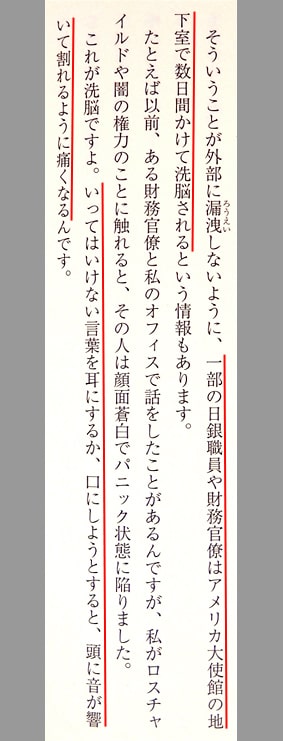 そういうことが外部に漏洩しないように、一部の日銀職員や財務官僚はアメリカ大使館の地
ろうえい
下室で数日間かけて洗脳されるという情報もあります。
たとえば以前、ある財務官僚と私のオフィスで話をしたことがあるんですが、私がロスチャ
イルドや闇の権力のことに触れると、その人は顔面蒼白でパニック状態に陥りました。
これが洗脳ですよ。いってはいけない言葉を耳にするか、口にしようとすると、頭に音が響
いて割れるように痛くなるんです。